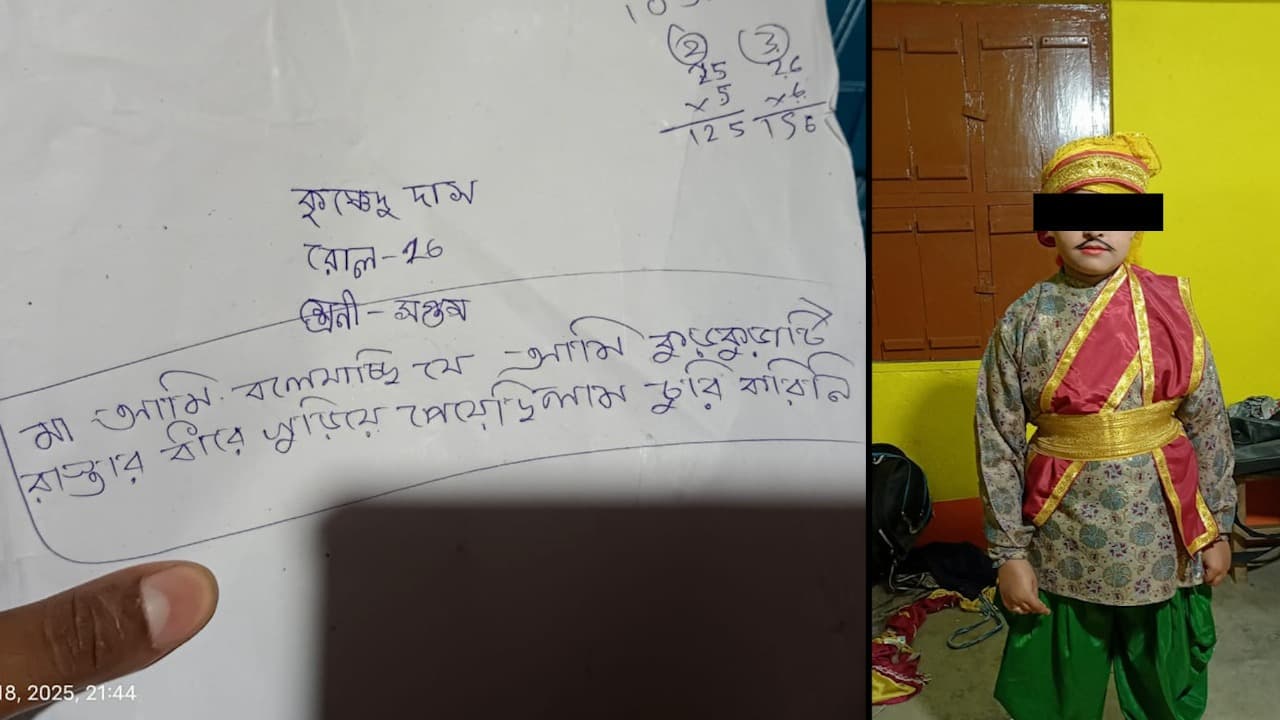 2 3
25 26
×5 ×6
125 156
কৃষ্ণেন্দু দাস
রোল-26
শ্রেনী - সপ্তম
মা আমি বলেযাচ্ছি যে আমি কুড়কুড়াটি
রাস্তার ধারে কুড়িয়ে পেয়েছিলাম চুরি করিনি
18, 2025, 21:44